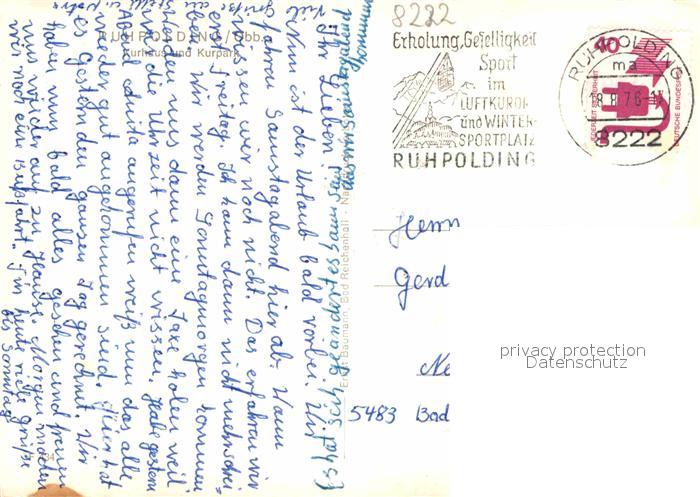 8222
Erholung, Geselligkeit
Sport
im
LUFTKURORT
und WINTER-
SPORTPLATZ
RUHPOLDING
RUHPOLDING
ma
8.76
8222
40
JEDERZEIT SICHERHEIT
DEUTSCHE BUNDESPOST
RUHPOLDING/Obb.
Kurhaus und Kurpark
Ernst Baumann, Bad Reichenhall
Ihr Lieben!
Nun ist der Urlaub bald vorbei. Wir
fahren Samstagabend hier ab. Wann
wissen wir noch nicht. Das erfahren wir
erst Freitag. Ich kann dann nicht mehr schrei-
ben. Wir werden Sonntagmorgen kommen
uns dann eine Taxe holen weil
wir die Uhrzeit nicht wissen. Habe gestern
Abend Anita angerufen weiß nun das alle
wieder gut angekommen sind. Hier hat
es gestern den ganzen Tag geregnet. Wir
haben nun bald alles gesehen und freuen
uns wieder auf zu Hause. Morgen machen
wir noch eine Busfahrt. Für heute viele Grüße
bis Sonntag
Es hat sich geändert
das wir Samstagabend
kommen
Herrn
Gerd
Ne
5483 Bad
privacy protection
Datenschutz